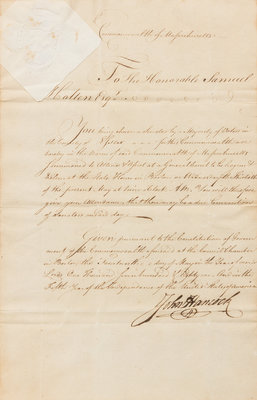 Commonwealth of Massachusetts
To The Honorable Samuel
Holten Esqr
You being chosen a Senator by a Majority of Votes in
the County of Essex for this Commonwealth are
hereby in the Name of said Commonwealth of Massachusetts
Summoned to Attend a General Court to be
Holden at the State House in Boston on Wednesday the Thirtieth
of the present May at nine Clock AM.
give your Attendance that there may be a due Convention
of Senators on said day
Given pursuant to the Constitution of Govern
ment of the Commonwealth aforesaid at the Council Chamber
in Boston the day of May in the Year of our
Lord One Thousand seven hundred & Eighty one And in the
Fifth Year of the Independence of the United States of America
John Hancock